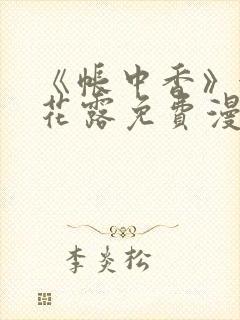 《帐中香》
花露免费漫
李炎松